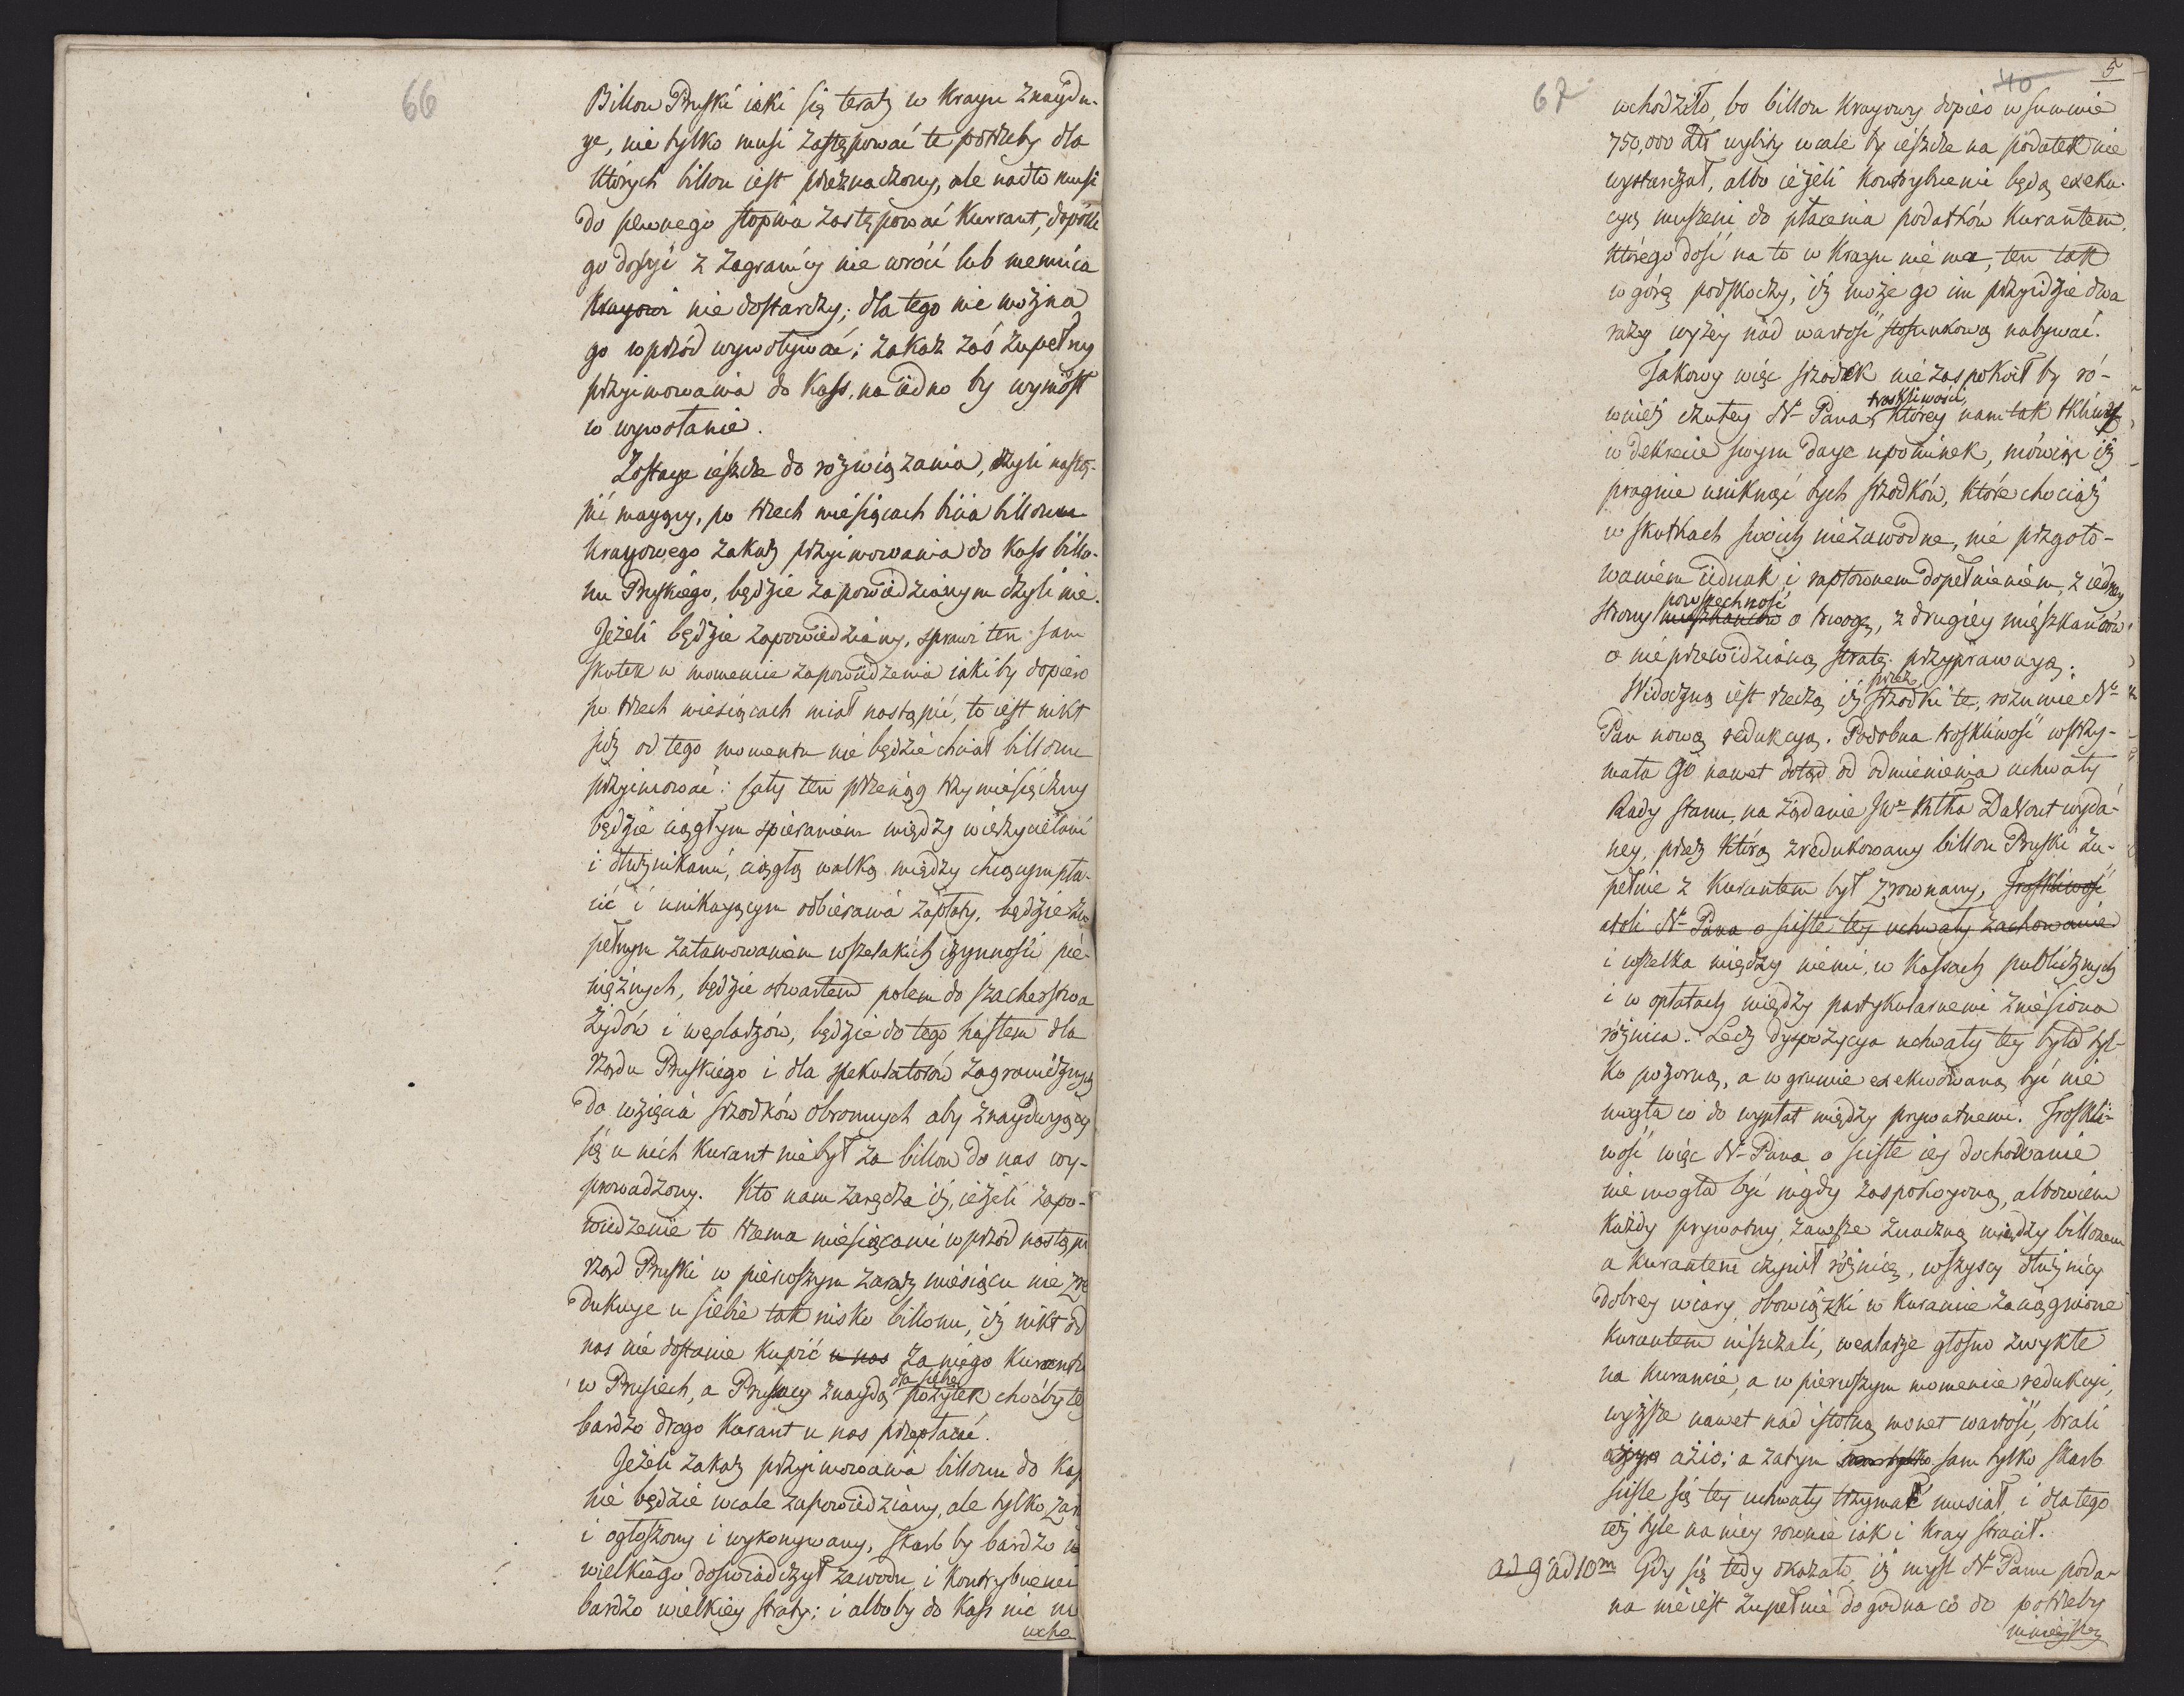 66
Billon Pruski iaki się teraz w Kraju znaydu-
ye, nie tylko musi zastępować te potrzeby dla
których billon iest przeznaczony, ale nadto musi
do pewnego stopnia zastępować Kurrant, dopóki
go dosyć z zagranicy nie wróci lub mennica
Krayowi nie dostarczy; dla tego nie można
go wprzód wywoływać; zakaz zaś zupełny
przyimowania do Kass, na iedno by wyniosł
w wywołanie.
Zostaye ieszcze do rozwiązania, czyli nastą-
pić mayący, po trzech miesiącach bicia billonu
Krayowego zakaz przyimowania do Kass billo-
nu Pruskiego, będzie zapowiedzianym czyli nie.
Jeżeli będzie zapowiedziany, sprawi ten sam
skutek w momencie zapowiedzenia iaki by dopiero
po trzech miesiącach miał nastąpić, to iest nikt
już od tego momentu nie będzie chciał billonu
przyimować: cały ten przeciąg trzymiesięczny
będzie ciągłym spieraniem między wierzycielami
i dłużnikami, ciągłą walką między chcącym pła-
cić i unikającym odbierania zapłaty, będzie zu
pełnym zatamowaniem wszelakich czynności pie-
niężnych, będzie otwartem polem do szacherstwa
Żydów i wexlarzów, będzie do tego hasłem dla
rządu Pruskiego i dla spekulatorów zagranicznych
do wzięcia srzodków obronnych aby znayduyący
się u nich Kurant nie był za billon do nas wy-
prowadzony. Kto nam zaręcza iż, ieżeli zapo-
wiedzenie to trzema miesiącami wprzód nastąpi
rząd Pruski w pierwszym zaraz miesiącu nie zre
dukuye u siebie tak nisko billonu, iż nikt od
nas nie dostanie kupić u nas za niego Kurantu
dla siebie
w Prusiech, a Prusacy znaydą pożytek choćby też
bardzo drogo Kurant u nas przepłacać.
Jeżeli zakaz przyimowania billonu do Kass
nie będzie wcale zapowiedziany, ale tylko zar
i ogłoszony i wykonywany, skarb by bardzo
wielkiego doswiadczył zawodu i kontrybuenci
bardzo wielkiey straty; i albo by do Kass nic ni
wcho
67
40
5
wchodziło, bo billon Krayowy dopiero w summie
750,000 Złł wybity wcale by ieszcze na podatek nie
wystarczał, albo ieżeli kontrybuenci będą exeku-
cyą muszeni do płacenia podatków Kurantem,
którego dość na to w Kraju nie ma, ten tak
w górę podskoczy, iż może go im przyidzie dwa
razy wyżey nad wartość stosunkową nabywać.
Jakowy więc srzodek nie zaspokoił by ró-
troskliwości
wniey czułey N- Pana, którey nam tak tkliwy
w dekrecie swym daye upominek, mówiąc iż
pragnie uniknąć tych srzodków, które chociaż
w skutkach swoich niezawodne, nie przgoto-
waniem iednak i raptownem dopełnieniem, z iedney
powszechność
strony mieszkańców o trwogę, z drugiey mieszkańców
o nieprzewidzianą stratę przyprawuyą.
przez
Widoczną iest rzeczą iż srzodki te, rozumie N-
Pan nową redukcyą. Podobna troskliwość wstrzy-
mała Go nawet dotąd od odmienienia uchwały
Rady stanu, na żądanie JWo Młka Davout wyda-
ney, przez którą zredukowany billon Pruski zu-
pełnie z Kurantem był zrównany, Troskliwość
atoli N- Pana o scisłe tey uchwały zachowanie
i wszelka między niemi, w Kassach publicznych
i w opłatach między partykularnemi zniesiona
różnica. Lecz dyspozycya uchwały tey była tyl-
ko pozorną, a w gruncie exekwowaną być nie
mogła co do wypłat między prywatnemi. Troskli-
wość więc N- Pana o scisłe iey dochowanie
nie mogła być nigdy zaspokojoną, albowiem
każdy prywatny, zawsze znaczną między billonem
a Kurantem czynił różnicę, wszyscy dłużnicy
dobrey wiary, obowiązki w Kurancie zaciągnione
Kurantem niszczali, wexlarze głosno zwykłe
na Kurancie, a w pierwszym momencie redukcyi,
wyższe nawet nad istotną monet wartość, brali
ażio; a zatym sam tylko sam tylko skarb
scisle się tey uchwały trzymać musiał i dla tego
też tyle na niey rownie iak i Kray stracił.
ad 9 ad 10m Gdy się tedy okazało, iż mysl N- Panu poda-
na nie iest zupełnie dogodna co do potrzeby
ninieyszey